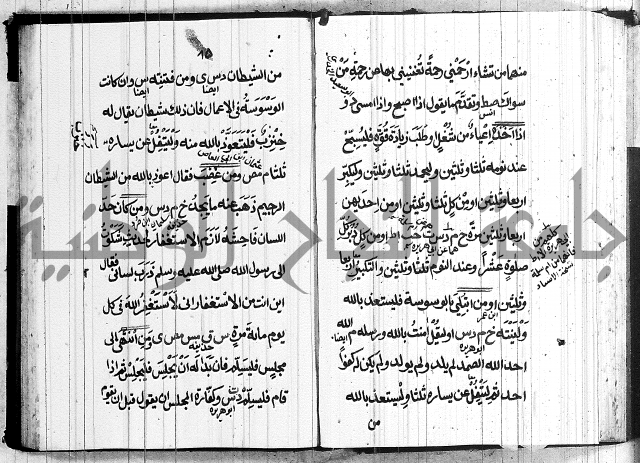 منها من تشاء ارحمني رحمة تغنيني بها عن رحمة من
سواك صط وتقدم ما يقول اذا اصبح واذا امسى د و
اذا اخذ اعياء من شغل وطلب زيادة قوة فليسبح
عند نومه ثلثا وثلثين وليحمد ثلثا وثلثين وليكبر
اربعا وثلثين او من كل ثلثا وثلثين او من احديهن
اربعا وثلثين خ م د س حب اط او من كل دبر كل
صلوة عشرا وعند النوم ثلثا وثلثين والتكبير اربعا
وثلثين او من ابتلي بالوسوسة فليستعذ بالله
ولينته خ م د س او ليقل امنت بالله ورسله م
الله احد الله الصمد لم يلد ولم يولد ولم يكن له كفوا
احد ثم ليتفل عن يساره ثلثا وليستعذ بالله
من
١٥
من الشيطان د س ى ومن فتنته س وان كانت
الوسوسة في الاعمال فان ذلك شيطان يقال له
خنزب فليتعوذ بالله منه وليتفل عن يساره
ثلثا م مص ومن غضب فقال اعوذ بالله من الشيطان
الرجيم ذهب عنه ما يجد خ م د س ومن كان حد
اللسان فاحشه لازم الاستغفار لحديث شكوت
الى رسول الله صلى الله عليه وسلم ذرب لساني فقال
اين انت من الاستغفار اني لاستغفر الله في كل
يوم مائة مرة س ق مس مص ى ومن انتهى الى
مجلس فليسلم فان بدا له ان يجلس فليجلس ثم اذا
قام فليسلم د ت س وكفارة المجلس ان يقول قبل ان يقوم
ابو هريرة
جامعة النجاح الوطنية